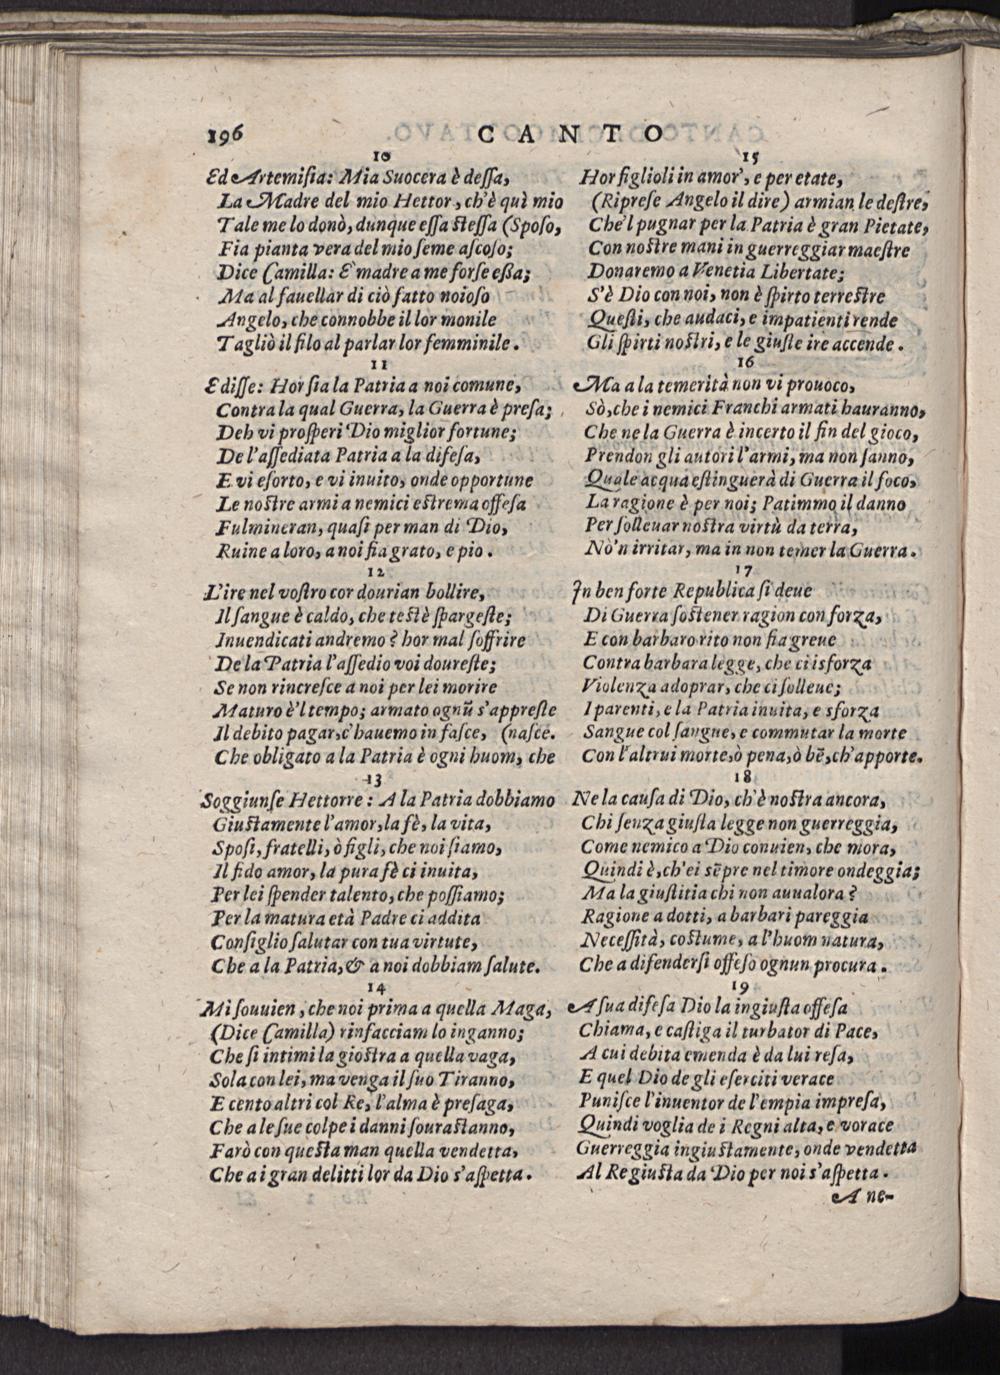 196 CANTO
10
Ed Artemiſia: Mia Suocera è deſſa,
La Madre del mio Hettor, ch'è quì mio
Tale me lo donò, dunque eſſa ſteſſa (Spoſo,
Fia pianta vera del mio ſeme aſcoſo;
Dice Camilla: E' madre a me forſe eßa;
Ma al fauellar di ciò fatto noioſo
Angelo, che connobbe il lor monile
Tagliò il filo al parlar lor femminile.
11
E diſſe: Hor ſia la Patria a noi comune,
Contra la qual Guerra, la Guerra è preſa;
Deh vi proſperi Dio miglior fortune;
De l'aſſediata Patria a la difeſa,
E vi eſorto, e vi inuito, onde opportune
Le noſtre armi a nemici eſtrema offeſa
Fulmineran, quaſi per man di Dio,
Ruine a loro, a noi fia grato, e pio.
12
L'ire nel voſtro cor dourian bollire,
Il ſangue è caldo, che teſtè ſpargeſte;
Inuendicati andremo? hor mal ſoffrire
De la Patria l'aſſedio voi doureſte;
Se non rincreſce a noi per lei morire
Maturo è'l tempo; armato ognũ s'appreſte
Il debito pagar, c'hauemo in faſce, (naſce.
Che obligato a la Patria è ogni huom, che
13
Soggiunſe Hettorre: A la Patria dobbiamo
Giuſtamente l'amor, la fè, la vita,
Spoſi, fratelli, ò figli, che noi ſiamo,
Il fido amor, la pura fè ci inuita,
Per lei ſpender talento, che poſſiamo;
Per la matura età Padre ci addita
Conſiglio ſalutar con tua virtute,
Che a la Patria, & a noi dobbiam ſalute.
14
Mi ſouuien, che noi prima a quella Maga,
(Dice Camilla) rinfacciam lo inganno;
Che ſi intimi la gioſtra a quella vaga,
Sola con lei, ma venga il ſuo Tiranno,
E cento altri col Re, l'alma è preſaga,
Che a le ſue colpe i danni ſouraſtanno,
Farò con queſta man quella vendetta,
Che a i gran delitti lor da Dio s'aſpetta.
15
Hor figlioli in amor', e per etate,
(Ripreſe Angelo il dire) armian le deſtre,
Che'l pugnar per la Patria è gran Pietate,
Con noſtre mani in guerreggiar maeſtre
Donaremo a Venetia Libertate;
S'è Dio con noi, non è ſpirto terreſtre
Queſti, che audaci, e impatienti rende
Gli ſpirti noſtri, e le giuſte ire accende.
16
Ma a la temerità non vi prouoco,
Sò, che i nemici Franchi armati hauranno,
Che ne la Guerra è incerto il fin del gioco,
Prendon gli autori l'armi, ma non ſanno,
Quale acqua eſtinguerà di Guerra il foco,
La ragione è per noi; Patimmo il danno
Per ſolleuar noſtra virtù da terra,
Nò'n irritar, ma in non temer la Guerra.
17
In ben forte Republica ſi deue
Di Guerra ſoſtener ragion con forza,
E con barbaro rito non ſia greue
Contra barbara legge, che ci isforza
Violenza adoprar, che ci ſolleue;
I parenti, e la Patria inuita, e sforza
Sangue col ſangue, e commutar la morte
Con l'altrui morte, ò pena, ò bẽ, ch'apporte.
18
Ne la cauſa di Dio, ch'è noſtra ancora,
Chi ſenza giuſta legge non guerreggia,
Come nemico a Dio conuien, che mora,
Quindi è, ch'ei sẽpre nel timore ondeggia;
Ma la giuſtitia chi non auualora?
Ragione a dotti, a barbari pareggia
Neceſſità, coſtume, a l'huom natura,
Che a difenderſi offeſo ognun procura.
19
A ſua difeſa Dio la ingiuſta offeſa
Chiama, e caſtiga il turbator di Pace,
A cui debita emenda è da lui reſa,
E quel Dio de gli eſerciti verace
Puniſce l'inuentor de l'empia impreſa,
Quindi voglia de i Regni alta, e vorace
Guerreggia ingiuſtamente, onde vendetta
Al Re giuſta da Dio per noi s'aſpetta.
A ne-